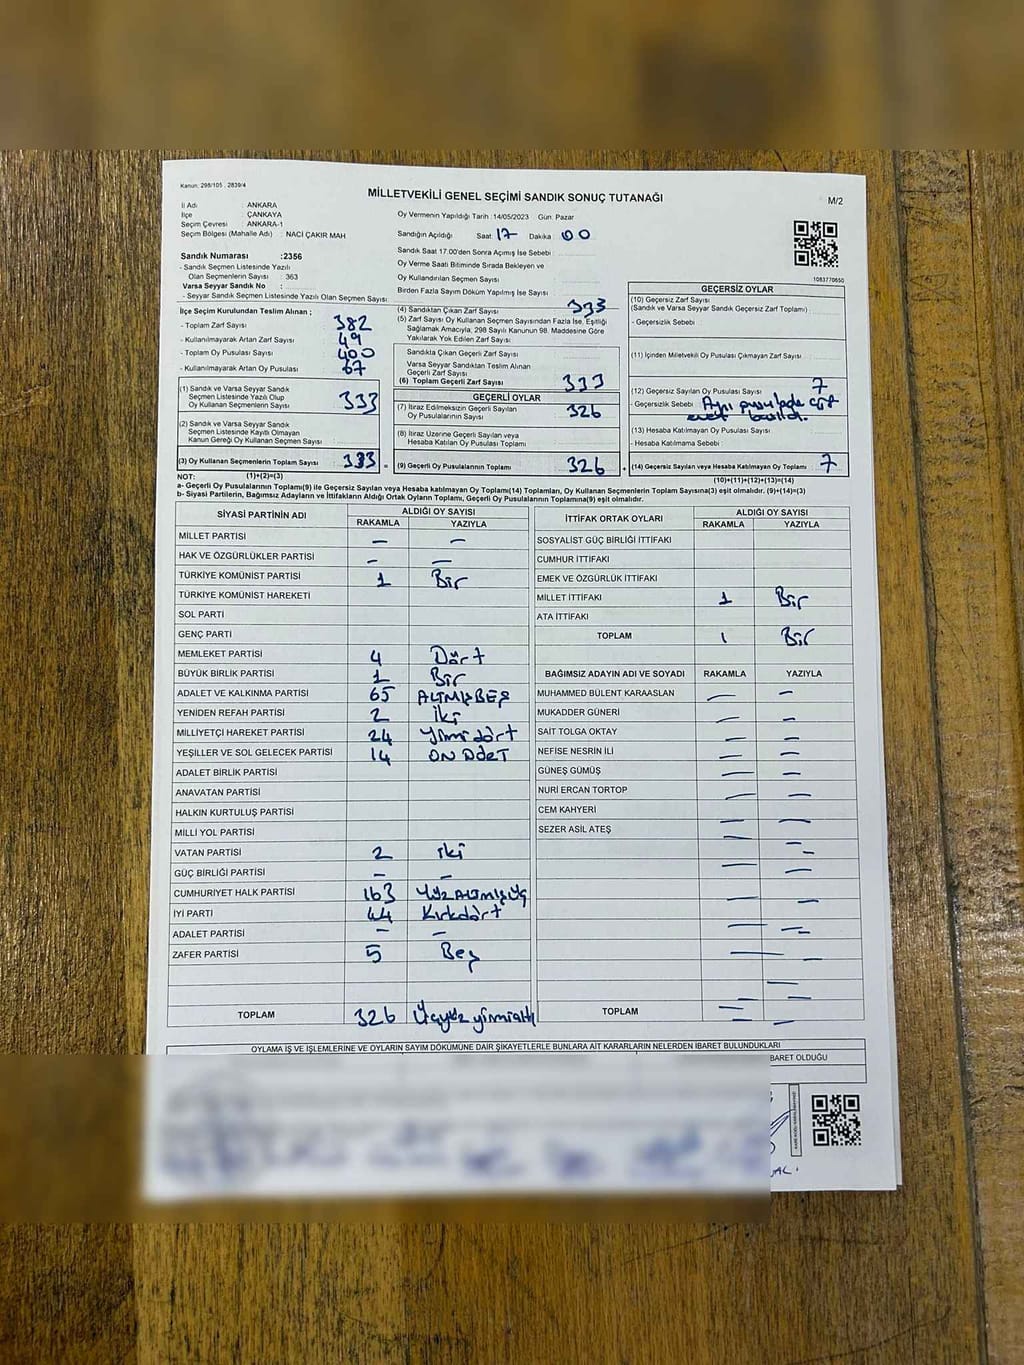 Kanun: 298/105 , 2839/4
MİLLETVEKİLİ GENEL SEÇİMİ SANDIK SONUÇ TUTANAĞI
M/2
İl Adı : ANKARA
İlçe : ÇANKAYA
Seçim Çevresi : ANKARA-1
Seçim Bölgesi (Mahalle Adı) : NACİ ÇAKIR MAH
Oy Vermenin Yapıldığı Tarih :14/05/2023 Gün: Pazar
Sandığın Açıldığı Saat 17 Dakika 00
Sandık Numarası :2356
- Sandık Seçmen Listesinde Yazılı
Olan Seçmenlerin Sayısı : 363
Varsa Seyyar Sandık No :
- Seyyar Sandık Seçmen Listesinde Yazılı Olan Seçmen Sayısı:
Sandık Saat 17:00'den Sonra Açılmış İse Sebebi :
Oy Verme Saati Bitiminde Sırada Bekleyen ve
Oy Kullandırılan Seçmen Sayısı
Birden Fazla Sayım Döküm Yapılmış İse Sayısı :
1083770650
İlçe Seçim Kurulundan Teslim Alınan ;
- Toplam Zarf Sayısı 382
- Kullanılmayarak Artan Zarf Sayısı 49
- Toplam Oy Pusulası Sayısı 400
- Kullanılmayarak Artan Oy Pusulası Sayısı 67
(1) Sandık ve Varsa Seyyar Sandık
Seçmen Listesinde Yazılı Olup
Oy Kullanan Seçmenlerin Sayısı 333
(2) Sandık ve Varsa Seyyar Sandık
Seçmen Listesinde Kayıtlı Olmayan
Kanun Gereği Oy Kullanan Seçmen Sayısı
(3) Oy Kullanan Seçmenlerin Toplam Sayısı 333 =
(4) Sandıktan Çıkan Zarf Sayısı 333
(5) Zarf Sayısı Oy Kullanan Seçmen Sayısından Fazla İse, Eşitliği
Sağlamak Amacıyla; 298 Sayılı Kanunun 98. Maddesine Göre
Yakılarak Yok Edilen Zarf Sayısı:
Sandıkta Çıkan Geçerli Zarf Sayısı
Varsa Seyyar Sandıktan Teslim Alınan
Geçerli Zarf Sayısı
(6) Toplam Geçerli Zarf Sayısı 333
GEÇERLİ OYLAR
(7) İtiraz Edilmeksizin Geçerli Sayılan
Oy Pusulalarının Sayısı 326
(8) İtiraz Üzerine Geçerli Sayılan veya
Hesaba Katılan Oy Pusulası Toplamı
(9) Geçerli Oy Pusulalarının Toplamı 326 +
GEÇERSİZ OYLAR
(10) Geçersiz Zarf Sayısı
(Sandık ve Varsa Seyyar Sandık Geçersiz Zarf Toplamı) :
- Geçersizlik Sebebi :
(11) İçinden Milletvekili Oy Pusulası Çıkmayan Zarf Sayısı
(12) Geçersiz Sayılan Oy Pusulası Sayısı 7
- Geçersizlik Sebebi : Aynı pusulada çift
evet basıldı.
(13) Hesaba Katılmayan Oy Pusulası Sayısı
- Hesaba Katılmama Sebebi :
(14) Geçersiz Sayılan veya Hesaba Katılmayan Oy Toplamı 7
NOT: (1)+(2)=(3) (10)+(11)+(12)+(13)=(14)
a- Geçerli Oy Pusulalarının Toplamı(9) ile Geçersiz Sayılan veya Hesaba katılmayan Oy Toplamı(14) Toplamları, Oy Kullanan Seçmenlerin Toplam Sayısına(3) eşit olmalıdır. (9)+(14)=(3)
b- Siyasi Partilerin, Bağımsız Adayların ve İttifakların Aldığı Ortak Oyların Toplamı, Geçerli Oy Pusulalarının Toplamına(9) eşit olmalıdır.
SİYASİ PARTİNİN ADI ALDIĞI OY SAYISI
RAKAMLA YAZIYLA
MİLLET PARTİSİ — —
HAK VE ÖZGÜRLÜKLER PARTİSİ — —
TÜRKİYE KOMÜNİST PARTİSİ 1 Bir
TÜRKİYE KOMÜNİST HAREKETİ
SOL PARTİ
GENÇ PARTİ
MEMLEKET PARTİSİ 4 Dört
BÜYÜK BİRLİK PARTİSİ 1 Bir
ADALET VE KALKINMA PARTİSİ 65 ALTMIŞBEŞ
YENİDEN REFAH PARTİSİ 2 İki
MİLLİYETÇİ HAREKET PARTİSİ 24 Yirmi dört
YEŞİLLER VE SOL GELECEK PARTİSİ 14 ON DÖRT
ADALET BİRLİK PARTİSİ
ANAVATAN PARTİSİ
HALKIN KURTULUŞ PARTİSİ
MİLLİ YOL PARTİSİ
VATAN PARTİSİ 2 iki
GÜÇ BİRLİĞİ PARTİSİ — —
CUMHURİYET HALK PARTİSİ 163 YüzALTMIŞÜç
İYİ PARTİ 44 Kırkdört
ADALET PARTİSİ — —
ZAFER PARTİSİ 5 Beş
TOPLAM 326 Üçyüz yirmialtı
İTTİFAK ORTAK OYLARI ALDIĞI OY SAYISI
RAKAMLA YAZIYLA
SOSYALİST GÜÇ BİRLİĞİ İTTİFAKI
CUMHUR İTTİFAKI
EMEK VE ÖZGÜRLÜK İTTİFAKI
MİLLET İTTİFAKI 1 Bir
ATA İTTİFAKI
TOPLAM 1 Bir
BAĞIMSIZ ADAYIN ADI VE SOYADI RAKAMLA YAZIYLA
MUHAMMED BÜLENT KARAASLAN — —
MUKADDER GÜNERİ — —
SAİT TOLGA OKTAY — —
NEFİSE NESRİN İLİ — —
GÜNEŞ GÜMÜŞ — —
NURİ ERCAN TORTOP — —
CEM KAHYERİ — —
SEZER ASİL ATEŞ — —
TOPLAM — —
OYLAMA İŞ VE İŞLEMLERİNE VE OYLARIN SAYIM DÖKÜMÜNE DAİR ŞİKAYETLERLE BUNLARA AİT KARARLARIN NELERDEN İBARET BULUNDUKLARI
BARET OLDUĞU